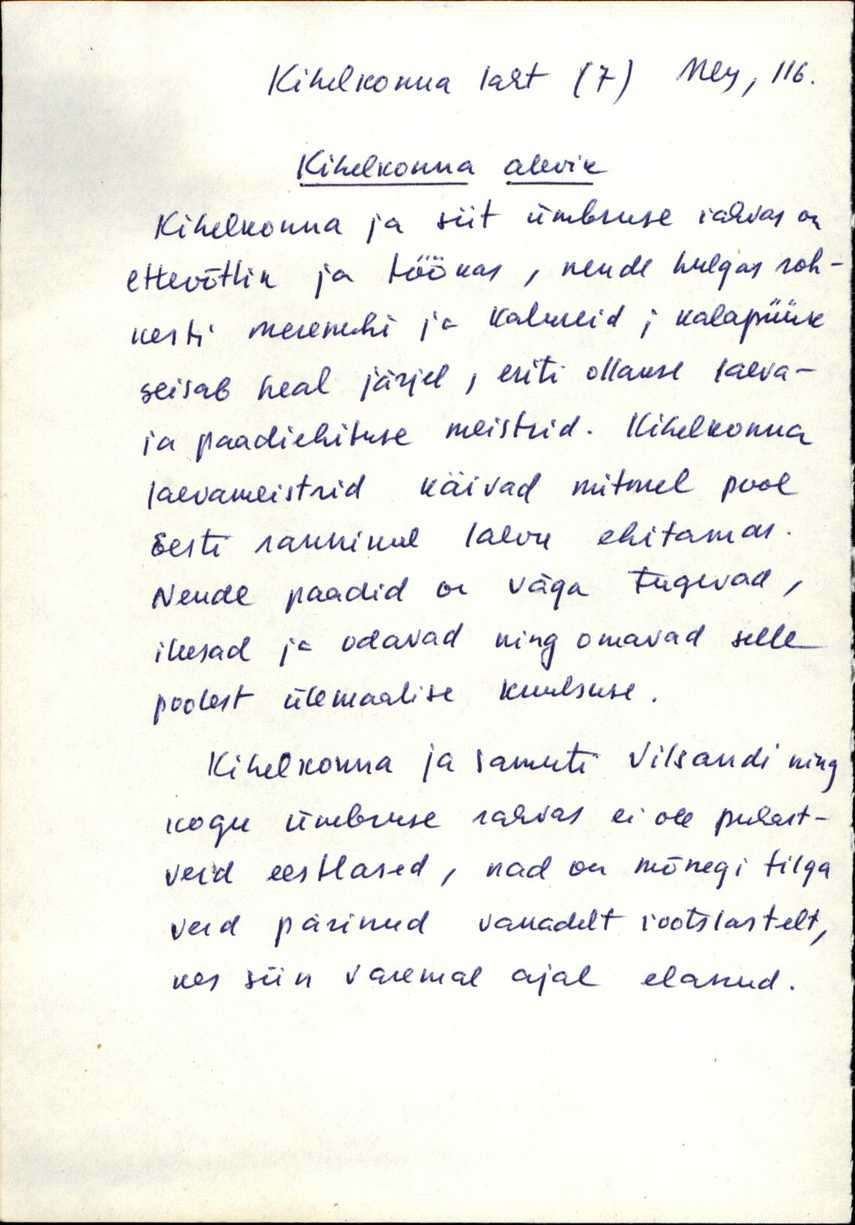 Kihelkonna last (7) Mey, 116.
Kihelkonna alevik
Kihelkonna ja siit ümbruse rahvas on
ettevõtlik ja töökas, nende hulgas roh-
kesti meremehi ja kalureid; kalapüük
seisab heal järjel, eriti ollakse laeva-
ja paadiehituse meistrid. Kihelkonna
laevameistrid käivad mitmel pool
Eesti rannikul laevu ehitamas.
Nende paadid on väga tugevad,
ilusad ja odavad ning omavad selle
poolest ülemaalise kuulsuse.
Kihelkonna ja samuti Vilsandi ning
kogu ümbruse rahvas ei ole puhast-
verd eestlased, nad on mõnegi tilga
verd pärinud vanadelt rootslastelt,
kes siin varemal ajal elanud.